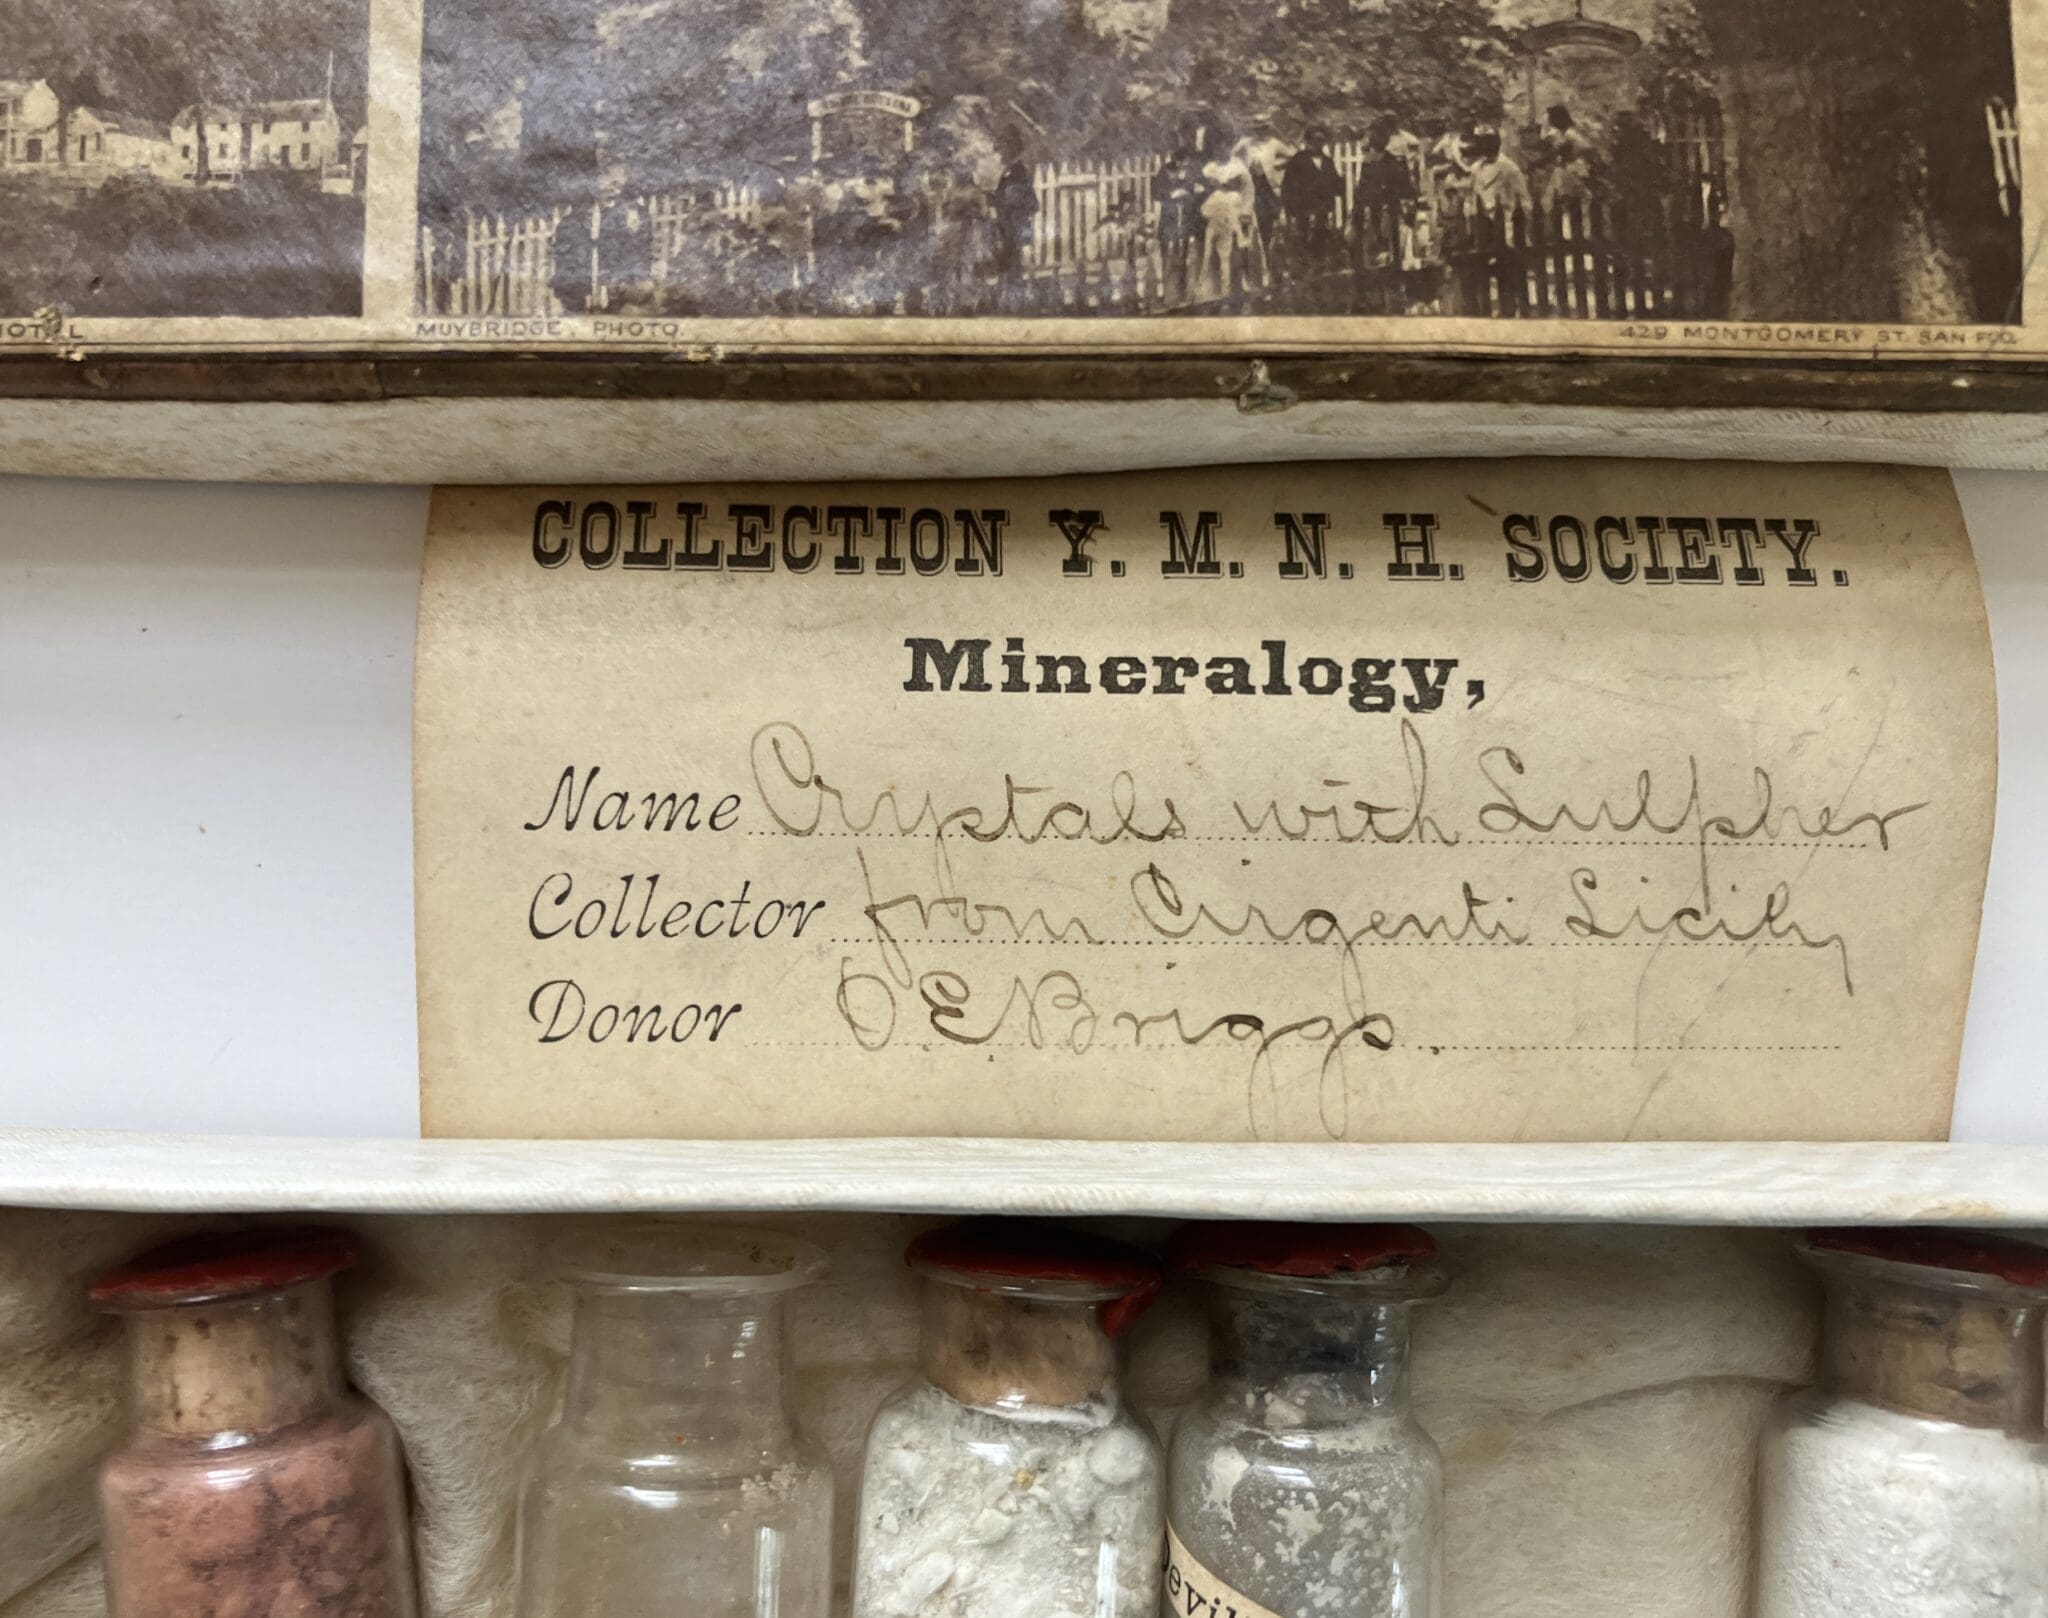 MUYBRIDGE. PHOTO.
429 MONTGOMERY ST. SAN FCO.
COLLECTION Y. M. N. H. SOCIETY.
Mineralogy,
Name Crystals with Sulpher
Collector from Cirgenti Sicily
Donor O. E. Briggs.